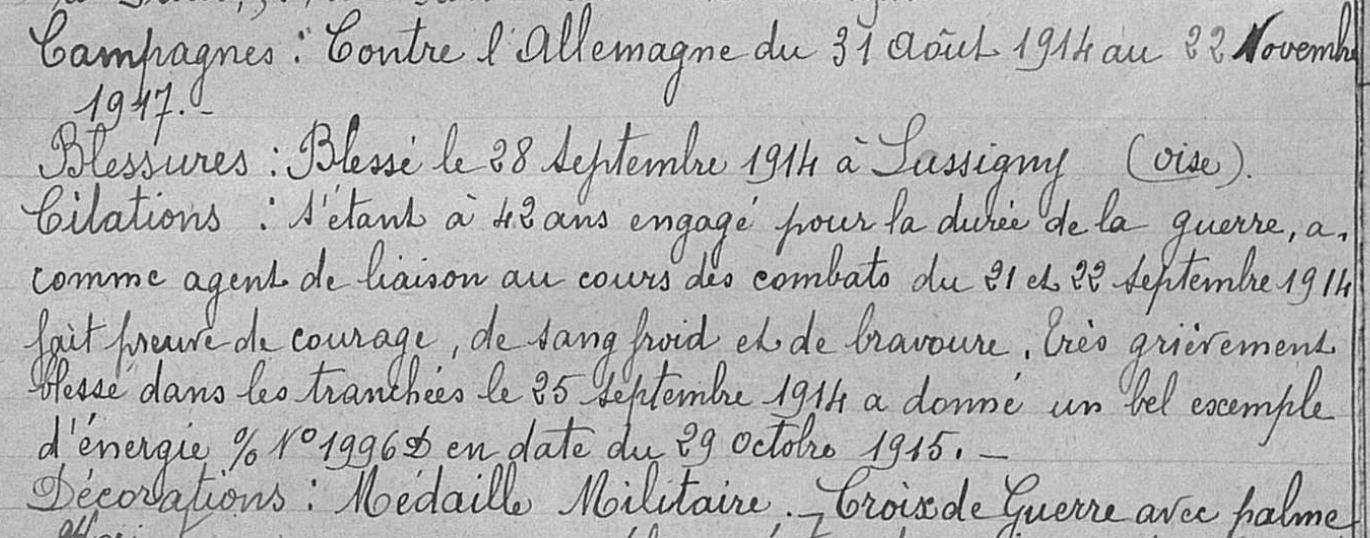 Campagnes : Contre l'Allemagne du 31 Août 1914 au 22 Novemb
1917.-
Blessures : Blessé le 28 Septembre 1914 à Lassigny (oise).
Citations : S'étant à 42 ans engagé pour la durée de la guerre, a,
comme agent de liaison au cours des combats du 21 et 22 Septembre 1914
fait preuve de courage, de sang froid et de bravoure. Très grièvement
blessé dans les tranchées le 25 Septembre 1914 a donné un bel exemple
d'énergie % N° 1996 D en date du 29 Octobre 1915. _
Décorations : Médaille Militaire. _ Croix de Guerre avec palme